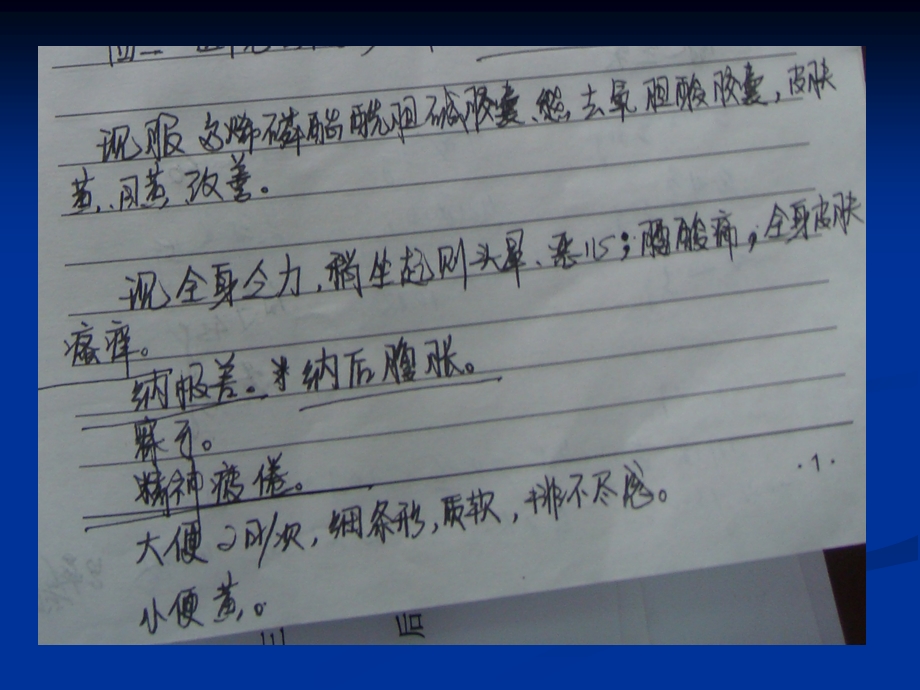 现服多烯磷酯酰胆碱胶囊、熊去氧胆酸胶囊,皮肤
黄,目黄改善。
现全身乏力,稍坐起则头晕、恶心;腰酸痛,全身皮肤
瘙痒。
纳极差。*纳后腹胀。
寐可。
精神疲倦。
大便2日/次,细条形,质软,排不尽感。
小便黄。
·1·